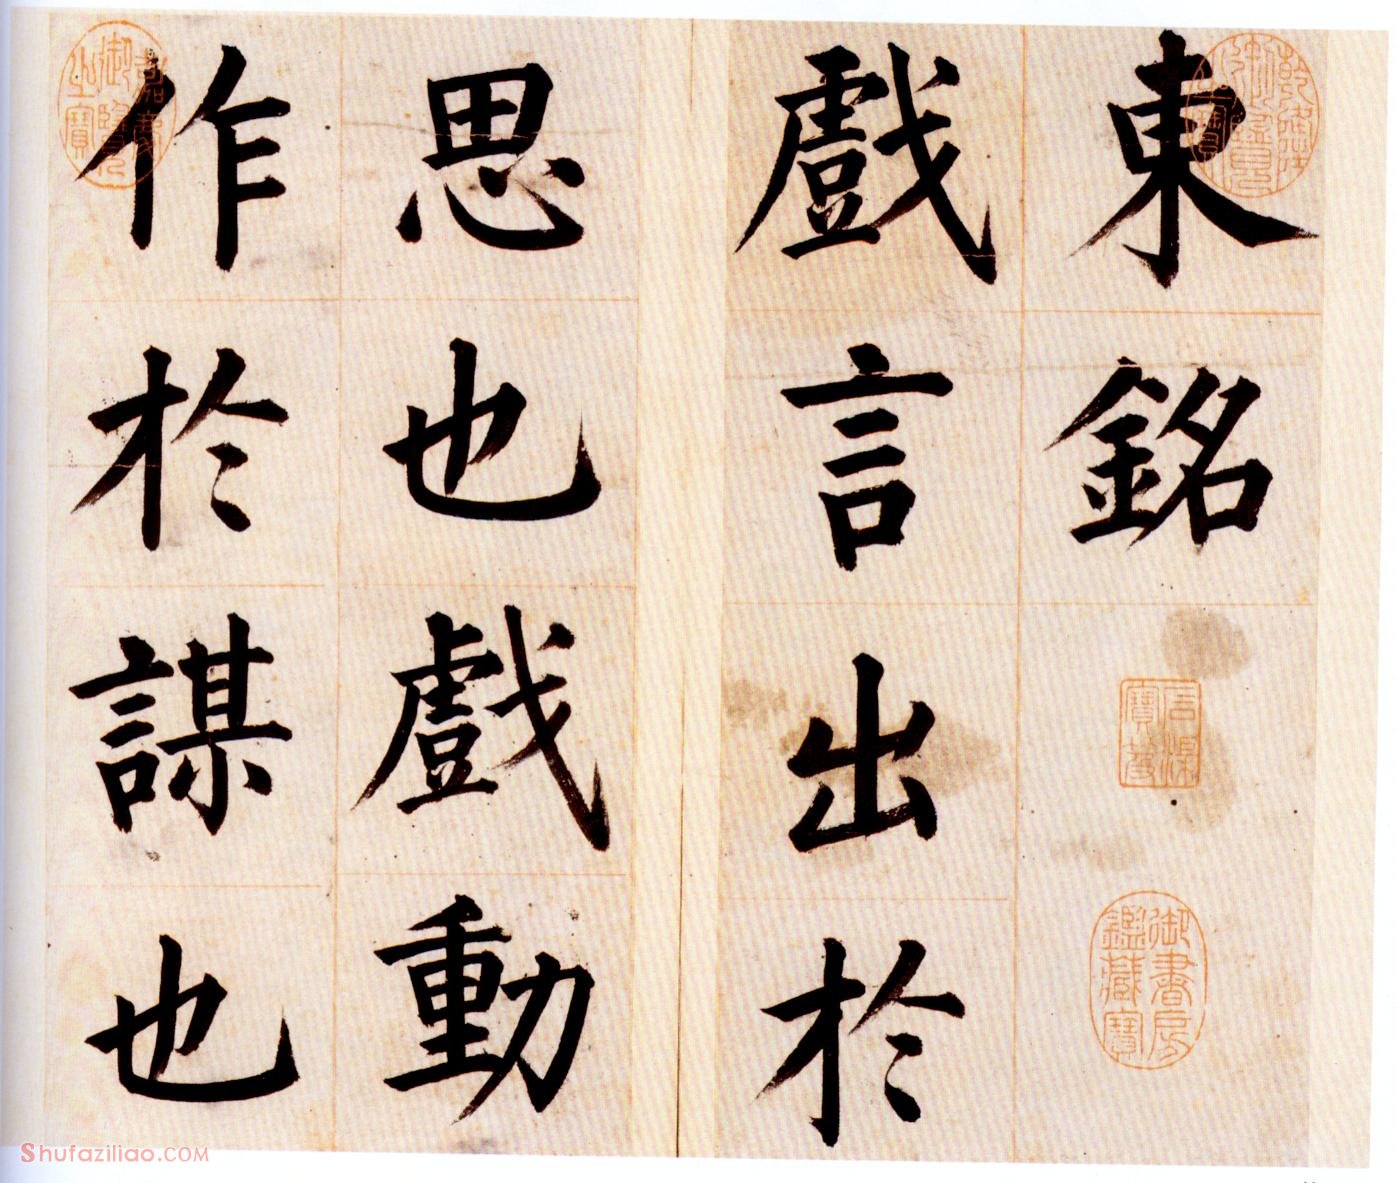 東銘
戲言出於
思也戲動
作於謀也
乾隆御覽之寶
信渠寶篆
御書房鑑藏寶
嘉慶御覽之寶
Shufaziliao.COM